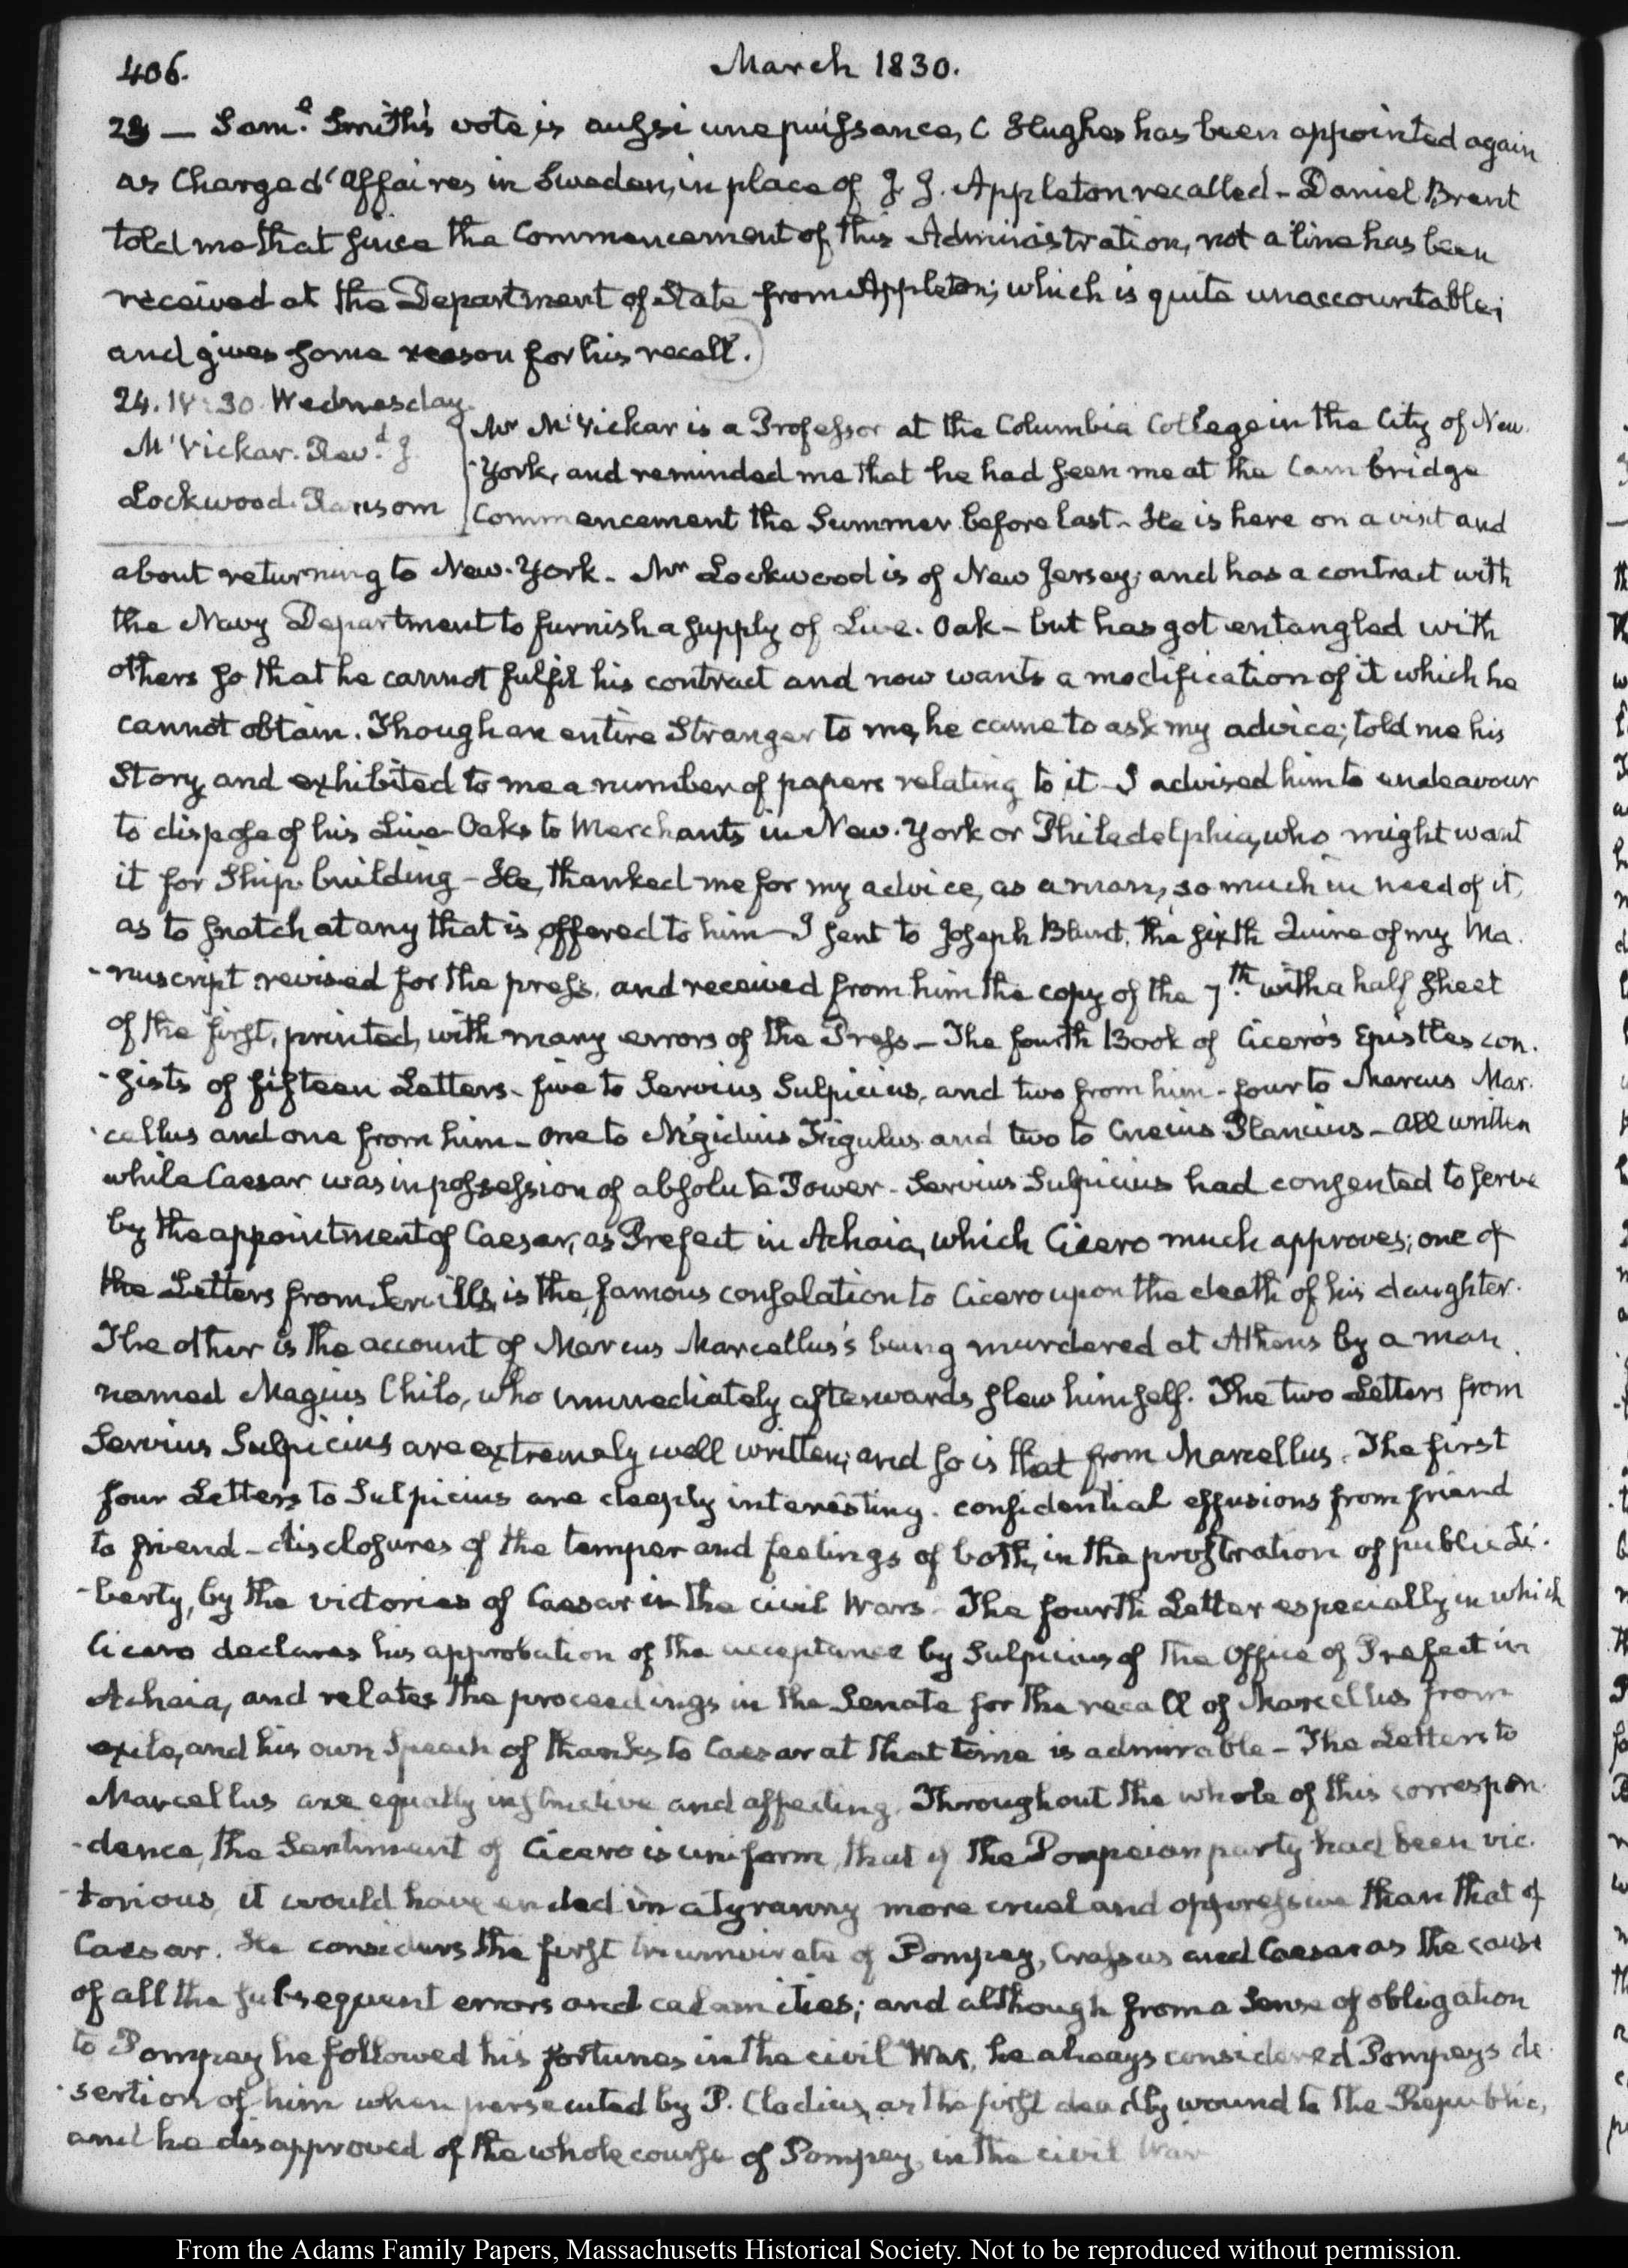 406. March 1830.
23 — Saml. Smith's vote is aussi une puissance, C Hughes has been appointed again
as Charge d'Affaires in Sweden, in place of J. J. Appleton recalled – Daniel Brent
told me that since the Commencement of this Administration, not a line has been
received at the Department of State from Appleton; which is quite unaccountable;
and gives some reason for his recall.
24. IV:30. Wednesday.
McVickar. Revd. J.
Lockwood. Ransom
Mr McVickar is a Professor at the Columbia College in the City of New-
-York, and reminded me that he had seen me at the Cambridge
Commencement the Summer before last. He is here on a visit and
about returning to New-York. Mr Lockwood is of New Jersey; and has a contract with
the Navy Department to furnish a supply of Live-Oak – but has got entangled with
others so that he cannot fulfil his contract and now wants a modification of it which he
cannot obtain. Though an entire Stranger to me, he came to ask my advice; told me his
Story, and exhibited to me a number of papers relating to it – I advised him to endeavour
to dispose of his Live-Oaks to Merchants in New-York or Philadelphia, who might want
it for Ship-building – He, thanked me for my advice, as a man, so much in need of it,
as to snatch at any that is offered to him – I sent to Joseph Blunt, the sixth Quire of my Ma-
-nuscript revised for the press, and received from him the copy of the 7th. with a half sheet
of the first, printed, with many errors of the Press – The fourth Book of Cicero's Epistles con-
-sists of fifteen Letters – five to Servius Sulpicius, and two from him – four to Marcus Mar-
-cellus and one from him – one to Nigidius Figulus and two to Cneius Plancius – all written
while Caesar was in possession of absolute Power – Servius Sulpicius had consented to serve
by the appointment of Caesar, as Prefect in Achaia, which Cicero much approves; one of
the Letters from Servius, is the famous consolation to Cicero upon the death of his daughter.
The other is the account of Marcus Marcellus's being murdered at Athens by a man
named Magius Chilo, who immediately afterwards slew himself. The two Letters from
Servius Sulpicius are extremely well written; and so is that from Marcellus. The first
four Letters to Sulpicius are deeply interesting. confidential effusions from friend
to friend – disclosures of the temper and feelings of both, in the prostration of public Li-
-berty, by the victories of Caesar in the civil Wars – The fourth Letter especially in which
Cicero declares his approbation of the acceptance by Sulpicius of the Office of Prefect in
Achaia, and relates the proceedings in the Senate for the recall of Marcellus from
exile, and his own Speech of thanks to Caesar at that time is admirable – The Letters to
Marcellus are equally instructive and affecting. Throughout the whole of this correspon-
-dence, the Sentiment of Cicero is uniform, that if the Pompeian party had been vic-
-torious, it would have ended in a tyranny more cruel and oppressive than that of
Caesar. He considers the first triumvirate of Pompey, Crassus and Caesar as the cause
of all the subsequent errors and calamities; and although from a Sense of obligation
to Pompey he followed his fortunes in the civil War, he always considered Pompey's de-
-sertion of him when persecuted by P. Clodius, as the first deadly wound to the Republic,
and he disapproved of the whole course of Pompey, in the civil War
From the Adams Family Papers, Massachusetts Historical Society. Not to be reproduced without permission.